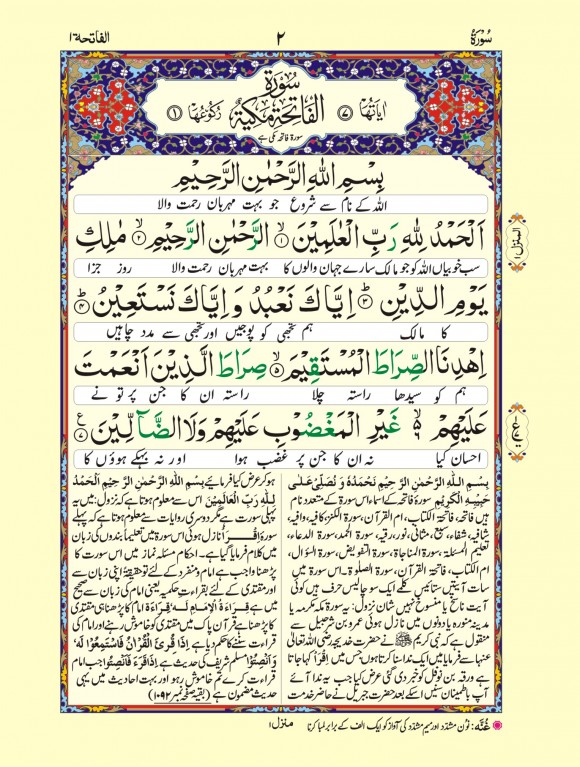 سورۃ
۲
الفاتحة ۱
سُوْرَةُ
اٰیَاتُهَا ۷
الْفَاتِحَةِ مَكِّيَّةٌ
رُكُوْعُهَا ۱
سورۃ فاتحہ مکی ہے
بِسْمِ اللّٰهِ الرَّحْمٰنِ الرَّحِیْمِ
اللہ کے نام سے شروع جو بہت مہربان رحمت والا
اَلْحَمْدُ لِلّٰهِ رَبِّ الْعٰلَمِیْنَ ۱ الرَّحْمٰنِ الرَّحِیْمِ ۲ مٰلِكِ
سب خوبیاں اللہ کو جو مالک سارے جہان والوں کا بہت مہربان رحمت والا روز جزا
یَوْمِ الدِّیْنِ ۳ اِیَّاكَ نَعْبُدُ وَ اِیَّاكَ نَسْتَعِیْنُ ۴
کا مالک ہم تجھی کو پوجیں اور تجھی سے مدد چاہیں
اِهْدِنَا الصِّرَاطَ الْمُسْتَقِیْمَ ۵ صِرَاطَ الَّذِیْنَ اَنْعَمْتَ
ہم کو سیدھا راستہ چلا راستہ ان کا جن پر تو نے
عَلَیْهِمْ ۶ غَیْرِ الْمَغْضُوْبِ عَلَیْهِمْ وَلَا الضَّآلِّیْنَ ۷
احسان کیا نہ ان کا جن پر غضب ہوا اور نہ بہکے ہوؤں کا
المنزل ۱
بِسْمِ اللّٰهِ الرَّحْمٰنِ الرَّحِیْمِ نَحْمَدُهٗ وَ نُصَلِّیْ عَلٰی
حَبِیْبِهِ الْكَرِیْمِ سورۂ فاتحہ کے اسماء اس سورۃ کے متعدد نام
ہیں فاتحہ، فاتحۃ الکتاب، ام القرآن، سورۃ الکنز، کافیہ، وافیہ،
شافیہ، شفاء، سبع مثانی، نور، رقیہ، سورۃ الحمد، سورۃ الدعاء،
تعلیم المسئلہ، سورۃ المناجاۃ، سورۃ التفویض، سورۃ السؤال،
ام الکتاب، فاتحۃ القرآن، سورۃ الصلوۃ۔ اس سورۃ میں
سات آیتیں ستائیس کلمے ایک سو چالیس حرف ہیں کوئی
آیت ناسخ یا منسوخ نہیں شان نزول: یہ سورۃ مکہ مکرمہ یا
مدینہ منورہ یا دونوں میں نازل ہوئی عمرو بن شرحبیل سے
منقول ہے کہ نبی کریم ﷺ نے حضرت خدیجہ رضی اللہ تعالیٰ
عنہا سے فرمایا میں ایک ندا سنا کرتا ہوں جس میں اقرأ کہا جاتا
ہے ورقہ بن نوفل کو خبر دی گئی عرض کیا جب یہ ندا آئے
آپ باطمینان سنیں اسکے بعد حضرت جبریل نے حاضر خدمت
ہو کر عرض کیا فرمائیے بِسْمِ اللّٰهِ الرَّحْمٰنِ الرَّحِیْمِ اَلْحَمْدُ
لِلّٰهِ رَبِّ الْعٰلَمِیْنَ اس سے معلوم ہوتا ہے کہ نزول میں یہ
پہلی سورت ہے مگر دوسری روایات سے معلوم ہوتا ہے کہ پہلے
سورۃ اِقْرَاْ نازل ہوئی اس سورۃ میں تعلیماً بندوں کی زبان
میں کلام فرمایا گیا ہے۔ احکام مسئلہ نماز میں اس سورت کا
پڑھنا واجب ہے امام و منفرد کے لئے تو حقیقۃً اپنی زبان سے
اور مقتدی کے لئے بقراءت حکمیہ یعنی امام کی زبان سے صحیح
میں ہے قِرَاءَةُ الْاِمَامِ لَهٗ قِرَاءَةٌ امام کا پڑھنا ہی مقتدی
کا پڑھنا ہے قرآن پاک میں مقتدی کو خاموش رہنے اور امام کی
قراءت سننے کا حکم دیا ہے اِذَا قُرِئَ الْقُرْاٰنُ فَاسْتَمِعُوْا لَهٗ
وَ اَنْصِتُوْا مسلم شریف کی حدیث ہے اِذَا قَرَءَ فَاَنْصِتُوْا جب امام
قراءت کرے تم خاموش رہو اور بہت احادیث میں یہی
حدیث مضمون ہے (بقیہ صفحہ نمبر ۱۰۹۲)
غُنَّہ: نُون مشدّد اور میم مشدّد کی آواز کو ایک الف کے برابر لمبا کرنا
منزل ۱